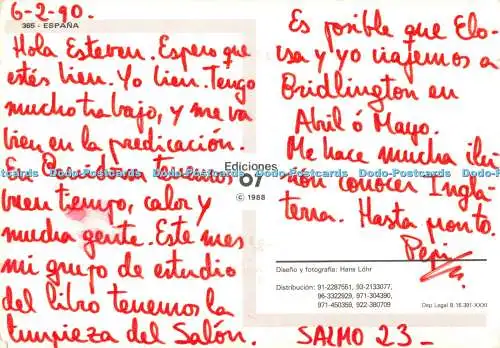 6-2-90.
365 - ESPAÑA
Hola Esteban. Espero que
estés bien. Yo bien. Tengo
mucho trabajo, y me va
bien en la predicación.
En tenemos
buen tiempo, calor y
mucha gente. Este mes
mi grupo de estudio
del libro tenemos la
limpieza del Salón.
Ediciones
07
© 1988
Es posible que Elo-
isa y yo viajemos a
Bridlington en
Abril ó Mayo.
Me hace mucha ilu-
sión conocer Ingla-
terra. Hasta pronto.
Pepi
Diseño y fotografía: Hans Löhr
Distribución: 91-2287551, 93-2133077,
96-3322929, 971-304390,
971-450359, 922-380709
Dep. Legal B 16.391-XXXI
SALMO 23-
Dodo-Postcards